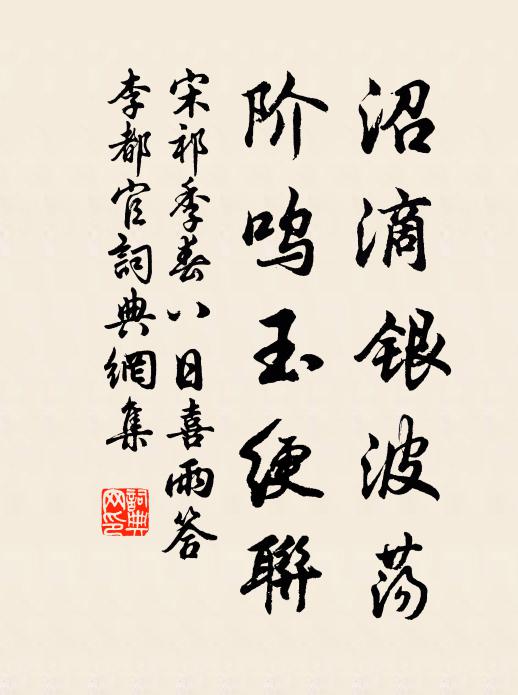 沼滴银波荡
阶鸣玉绠联
宋祁季春八日喜雨答
李都官詞典網集
詞典网印